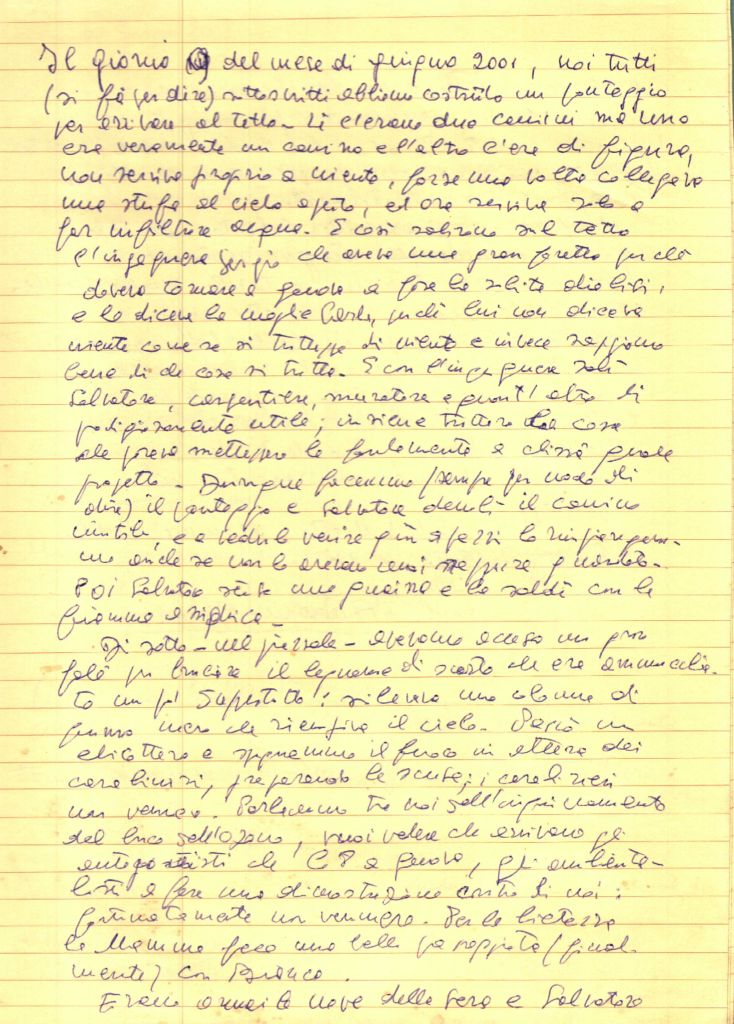 Il giorno 9 del mese di giugno 2001, noi tutti
(si fa per dire) sottoscritti abbiamo costruito un ponteggio
per arrivare al tetto. Lì c'erano due camini ma uno
era veramente un camino e l'altro c'era di figura,
non serviva proprio a niente, forse una volta collegava
una stufa al cielo aperto, ed ora serviva solo a
far infiltrare acqua. E così salirono sul tetto
l'ingegnere Sergio che aveva una gran fretta perché
doveva tornare a Genova a fare la
e lo diceva la moglie Carla, perché lui non diceva
niente come se si trattasse di niente e invece sappiamo
bene di che cosa si tratta. E con l'ingegnere salì
Salvatore, carpentiere, muratore e quant'altro di
prodigiosamente utile; insieme
mettessero le fondamenta a chissà quale
progetto. Dunque facemmo (sempre per modo di
dire) il ponteggio e Salvatore demolì il camino
inutile, e a vederlo venire giù a pezzi lo
mo anche se non lo avevamo mai neppure guardato.
Poi Salvatore stese una guaina e la saldò con la
fiamma ossidrica.
Di sotto - nel piazzale - avevamo acceso un gran
falò per bruciare il legname di scarto che era ammucchia-
to un po' dappertutto: si levava una colonna di
fumo nero che riempiva il cielo. Passò un
elicottero e spegnemmo il fuoco in attesa dei
carabinieri, preparando le scuse; i carabinieri
non vennero. Parlammo tra noi dell'inquinamento
del buco dell'ozono, vuoi vedere che arrivano gli
che G8 a Genova, gli ambienta-
listi a fare una dimostrazione contro di noi:
fortunatamente non vennero. Per la
la Mamma fece una bella (final-
mente) con Bianca.
Erano ormai le nove della sera e Salvatore